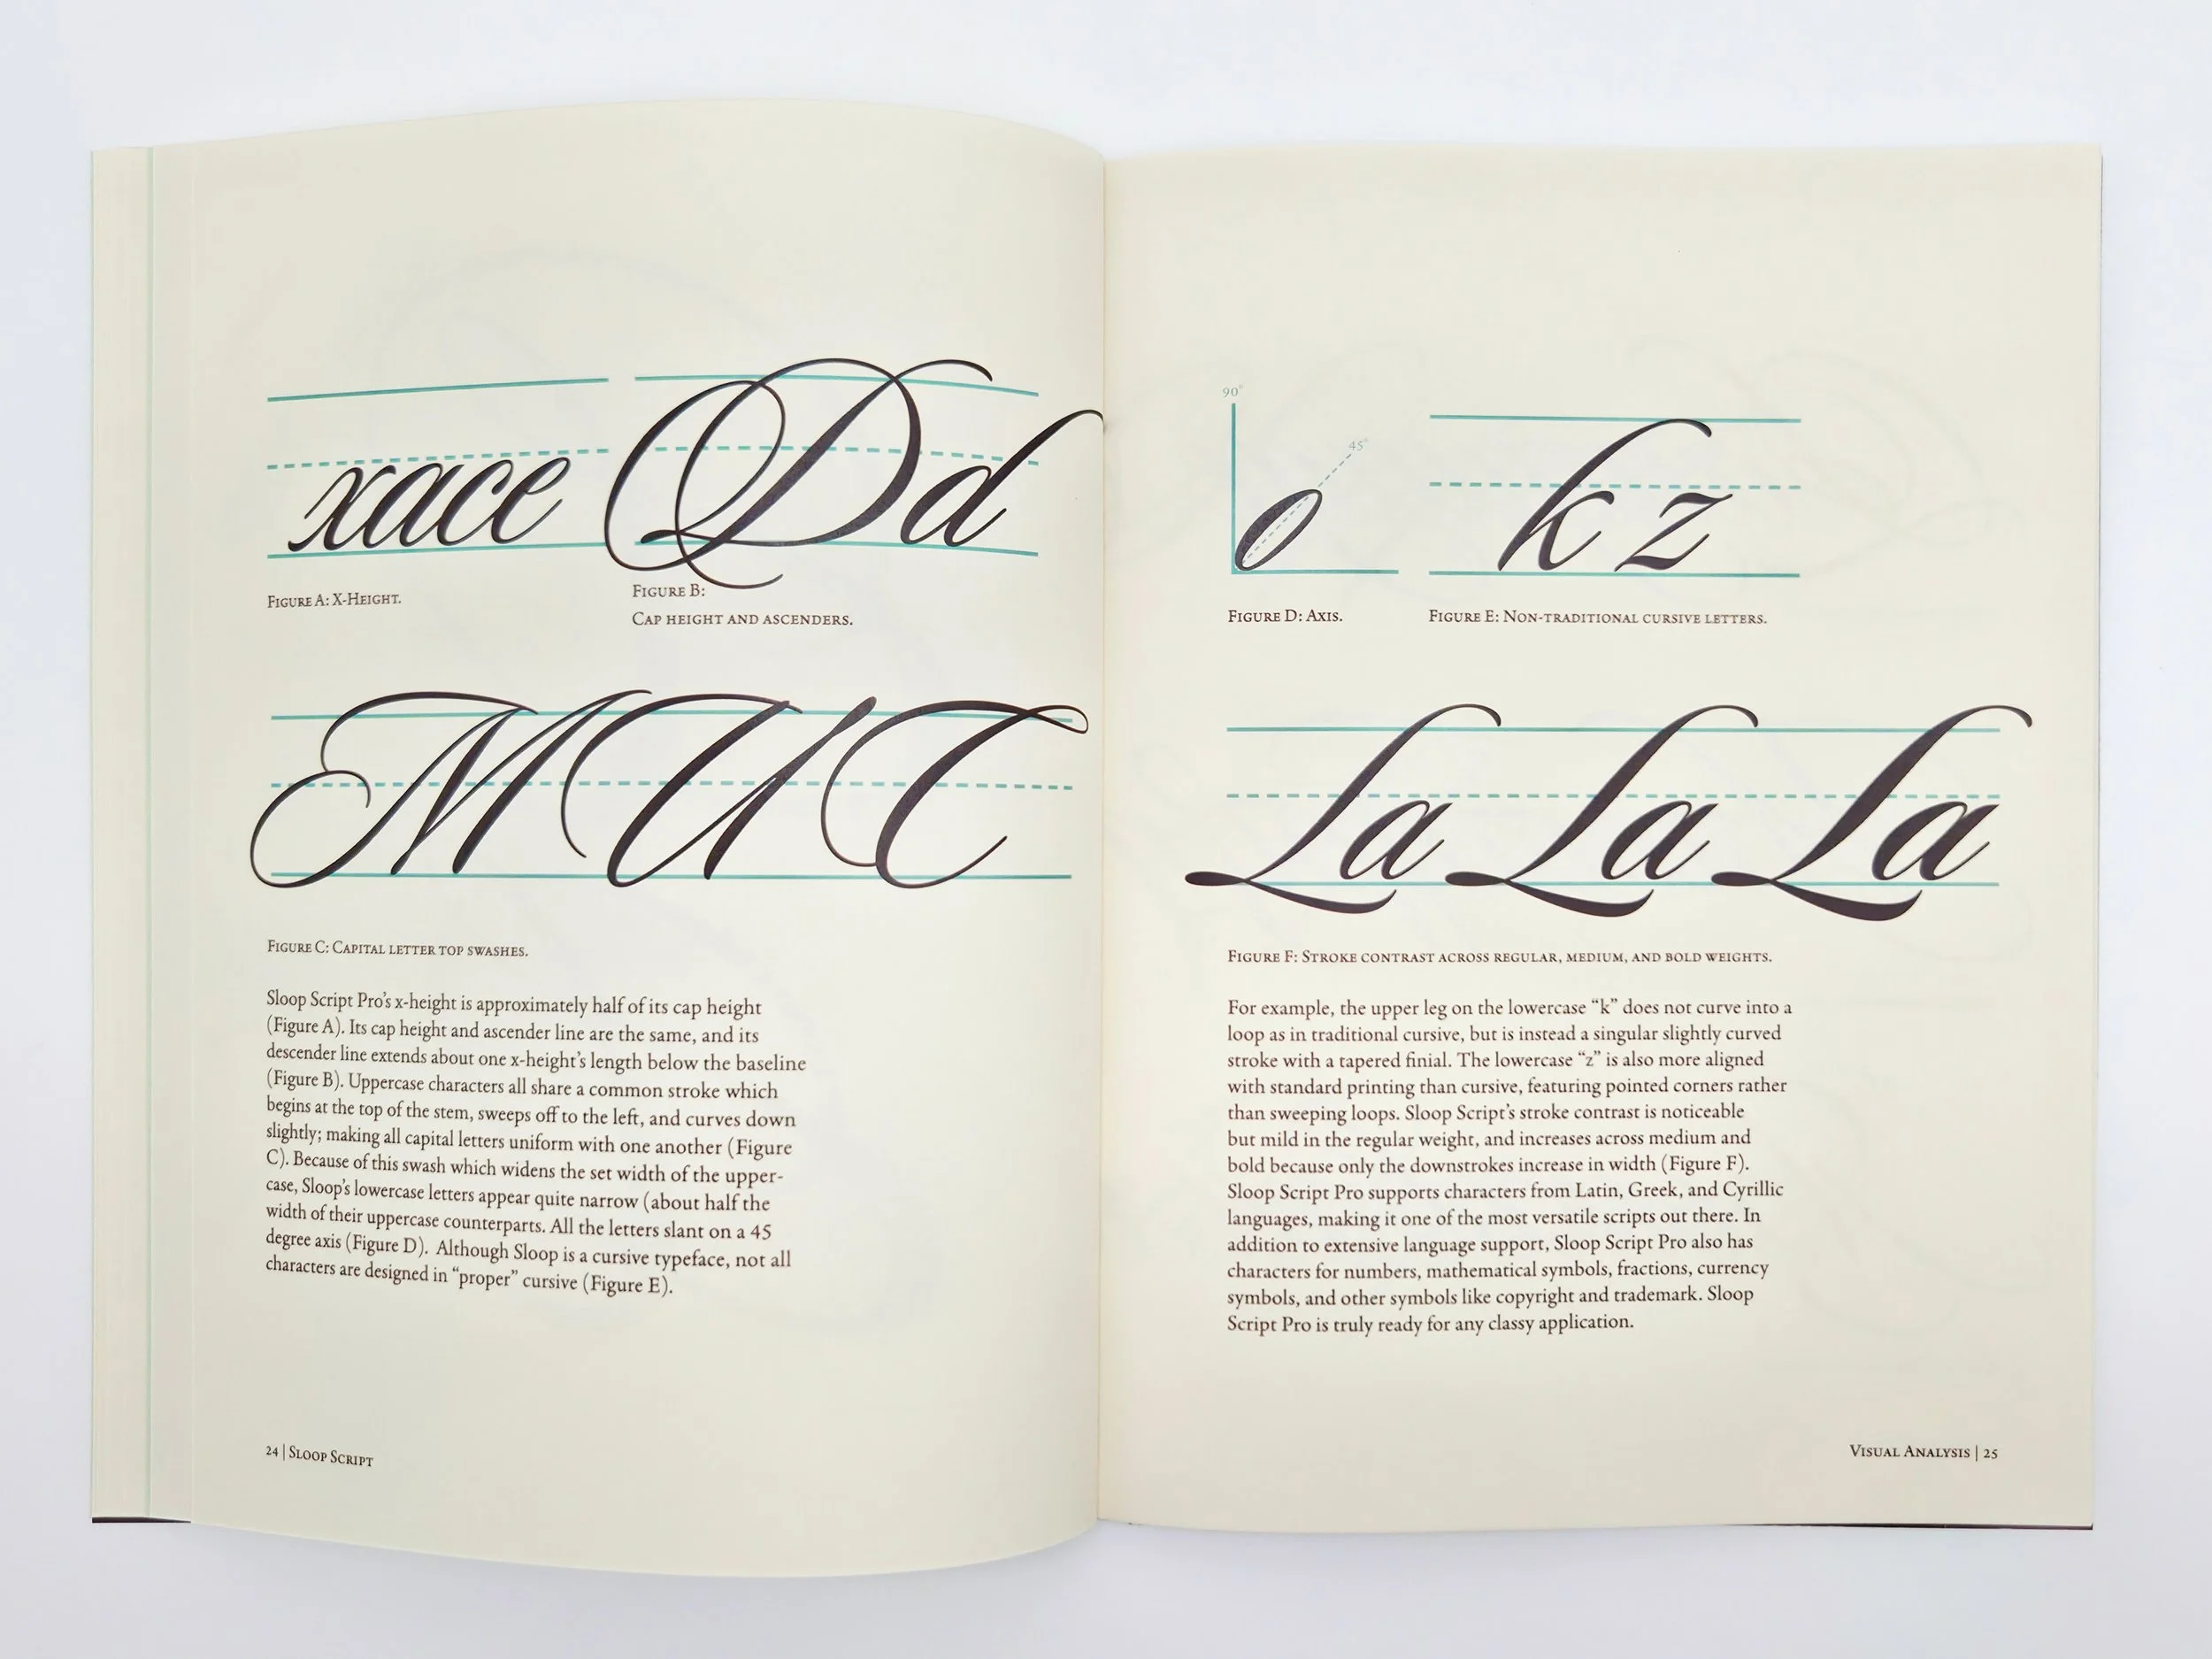 xace Dd
Figure A: X-Height.
Figure B:
Cap height and ascenders.
MUC
Figure C: Capital letter top swashes.
Sloop Script Pro's x-height is approximately half of its cap height
(Figure A). Its cap height and ascender line are the same, and its
descender line extends about one x-height's length below the baseline
(Figure B). Uppercase characters all share a common stroke which
begins at the top of the stem, sweeps off to the left, and curves down
slightly; making all capital letters uniform with one another (Figure
C). Because of this swash which widens the set width of the upper-
case, Sloop's lowercase letters appear quite narrow (about half the
width of their uppercase counterparts. All the letters slant on a 45
degree axis (Figure D). Although Sloop is a cursive typeface, not all
characters are designed in “proper” cursive (Figure E).
24 | Sloop Script
90°
45°
o
k z
Figure D: Axis.
Figure E: Non-traditional cursive letters.
La La La
Figure F: Stroke contrast across regular, medium, and bold weights.
For example, the upper leg on the lowercase “k” does not curve into a
loop as in traditional cursive, but is instead a singular slightly curved
stroke with a tapered finial. The lowercase “z” is also more aligned
with standard printing than cursive, featuring pointed corners rather
than sweeping loops. Sloop Script's stroke contrast is noticeable
but mild in the regular weight, and increases across medium and
bold because only the downstrokes increase in width (Figure F).
Sloop Script Pro supports characters from Latin, Greek, and Cyrillic
languages, making it one of the most versatile scripts out there. In
addition to extensive language support, Sloop Script Pro also has
characters for numbers, mathematical symbols, fractions, currency
symbols, and other symbols like copyright and trademark. Sloop
Script Pro is truly ready for any classy application.
Visual Analysis | 25